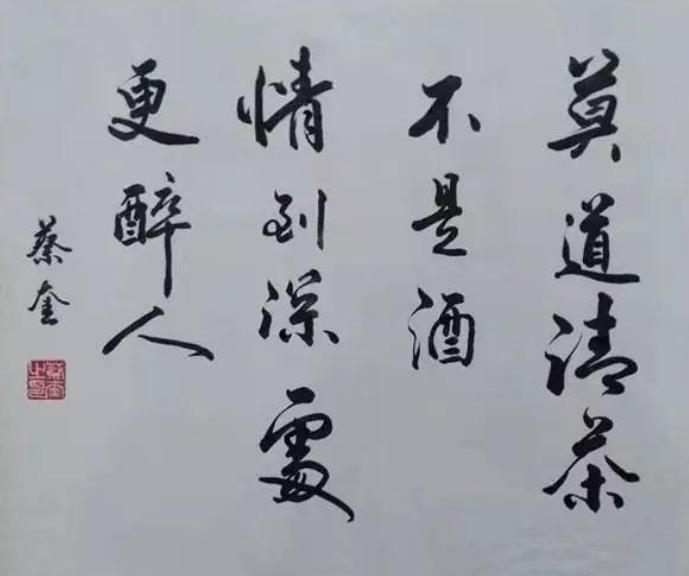 莫道清茶
不是酒
情到深處
更醉人
蔡奎
蔡奎之印